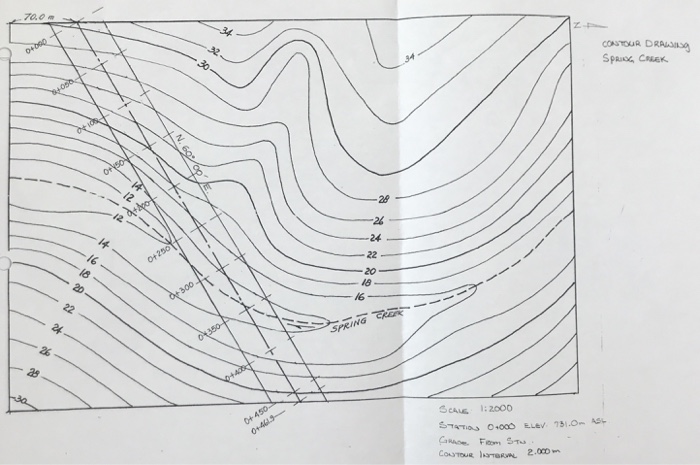 70.0 m
Z
CONTOUR DRAWING
SPRING CREEK
34
32
30
34
0+000
0+050
0+100
0+150
N. 60° 00' E
14
12
0+200
12
0+250
14
16
18
20
22
24
26
28
30
28
26
24
22
20
18
16
0+300
0+350
0+400
0+450
SPRING CREEK
SCALE 1:2000
STATION 0+000 ELEV. 731.0m ASL
GRADE FROM STN.
CONTOUR INTERVAL 2.000m